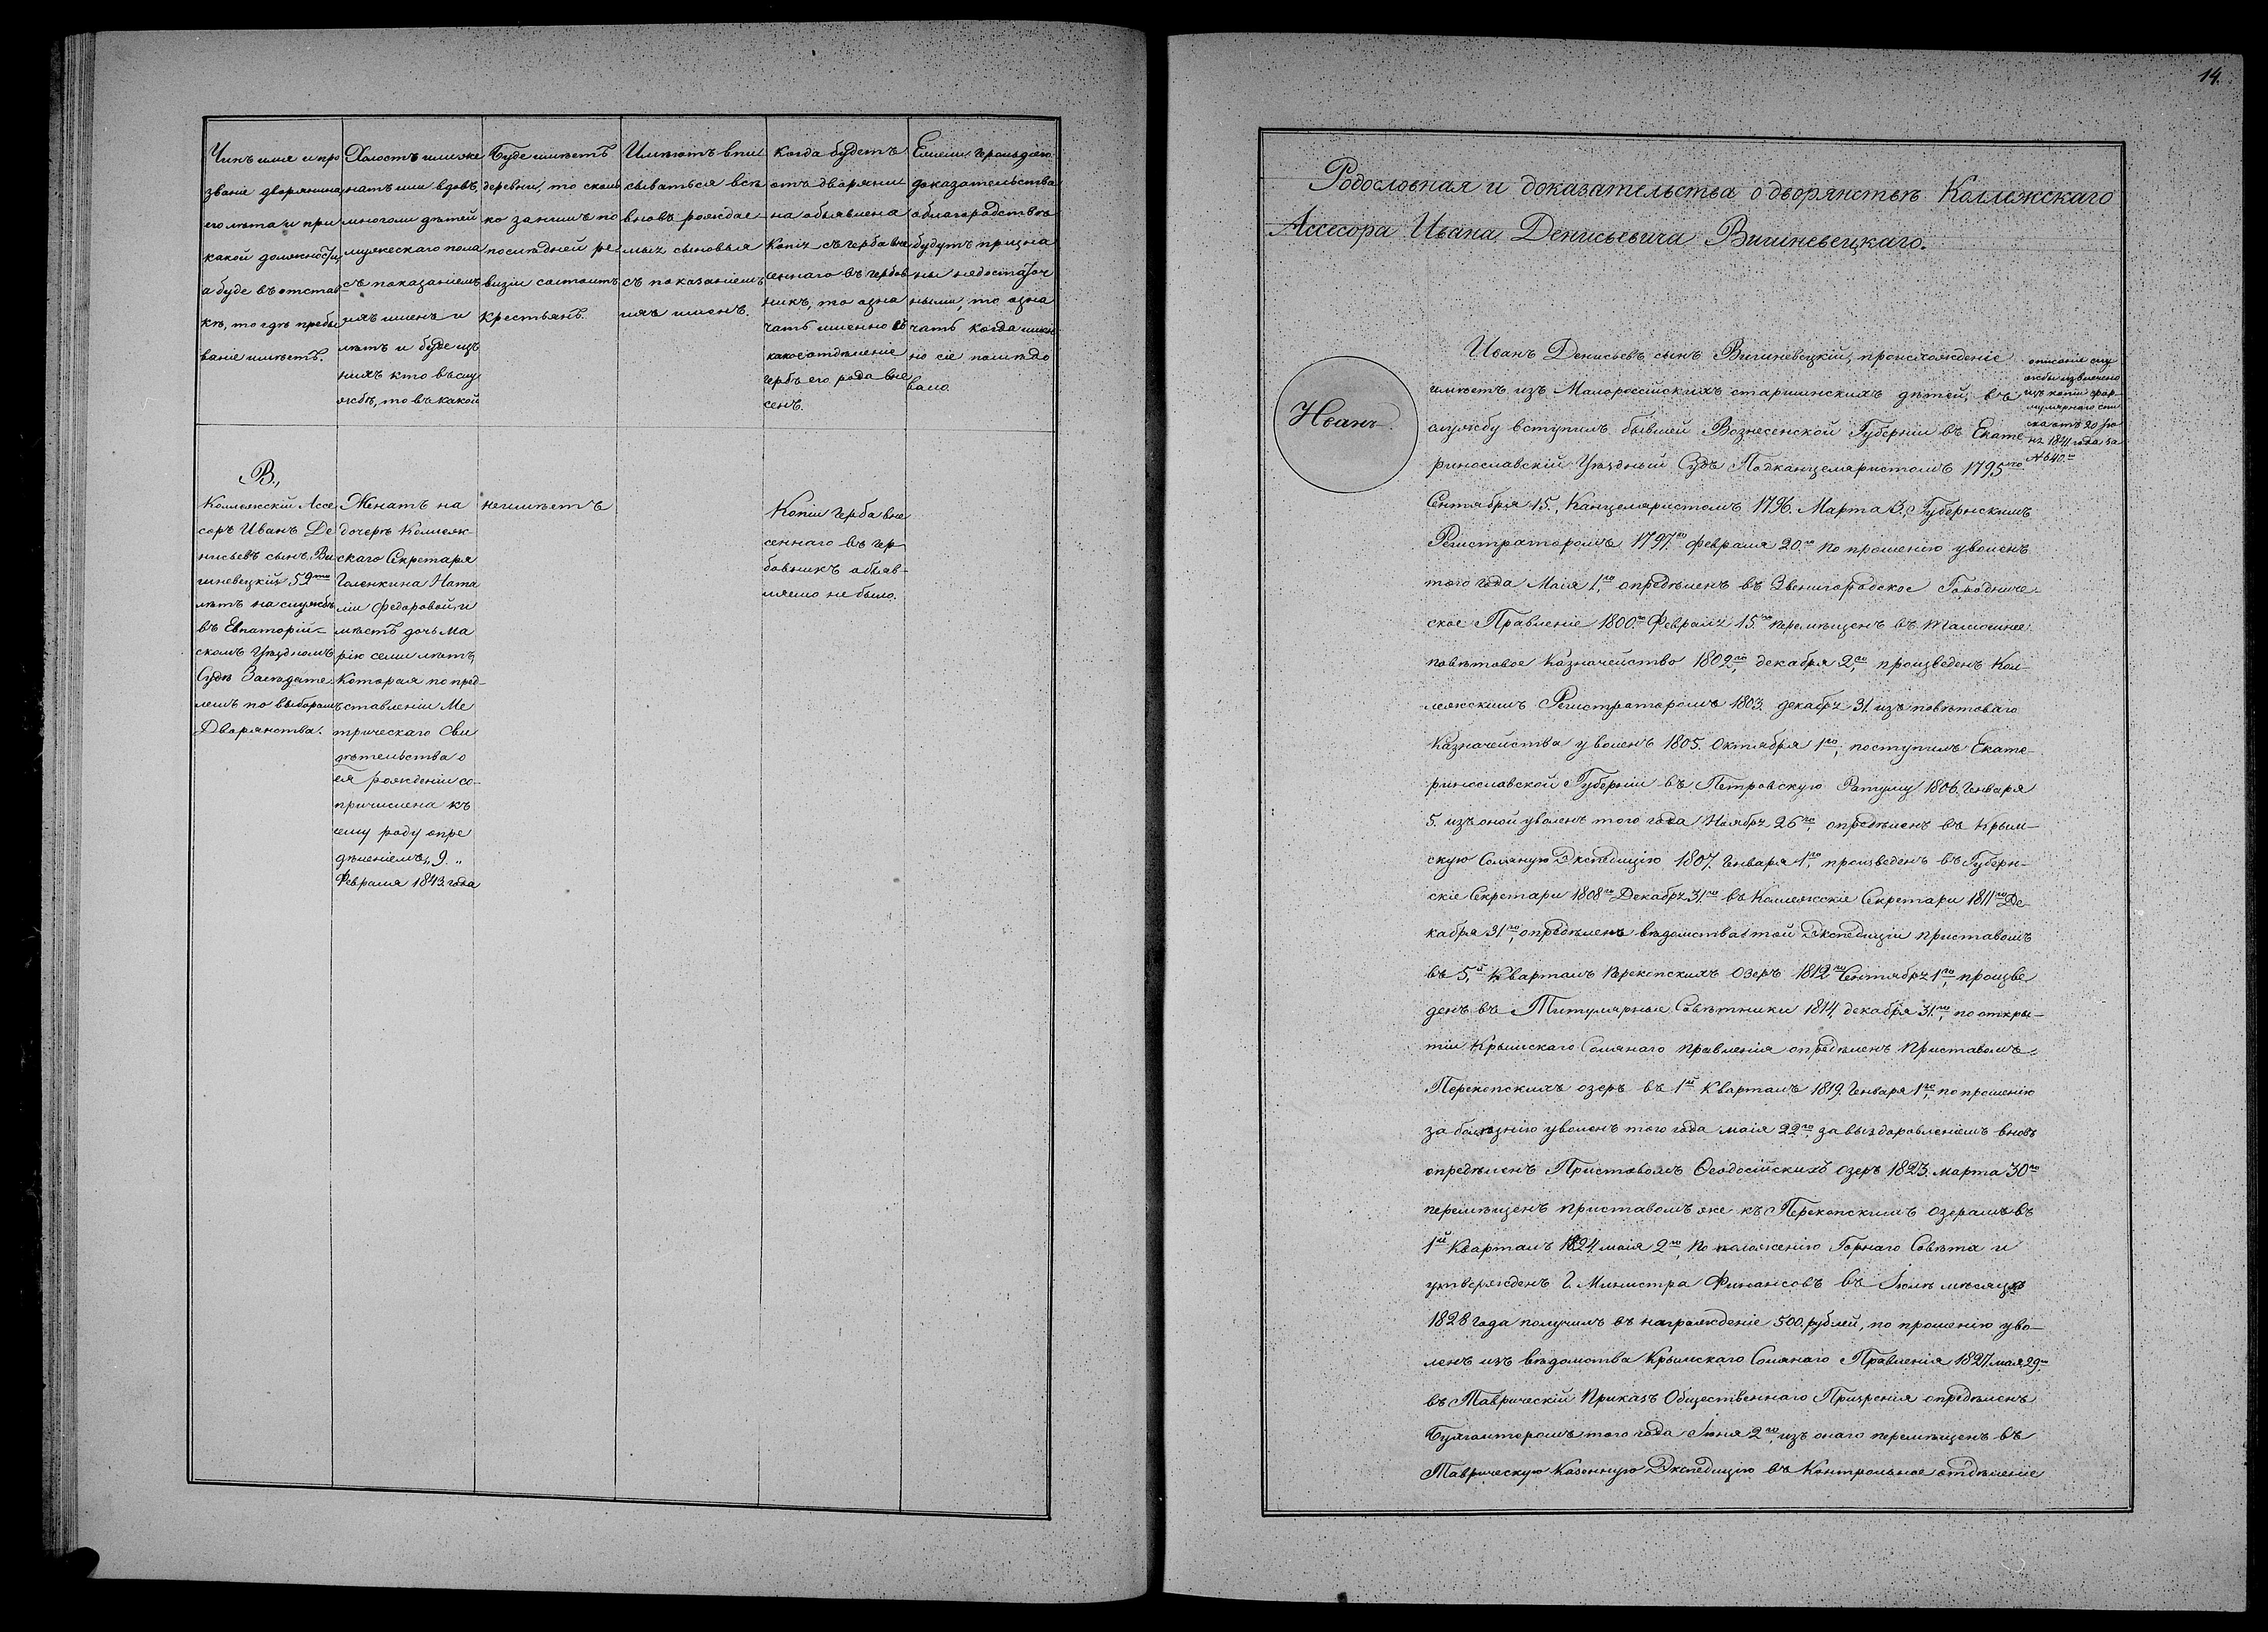 Чинъ имя и про
званіе дворянина,
его лѣта и при
какой должности,
а буде въ отстав
кѣ, то гдѣ пребы
ваніе имѣетъ.
Холостъ или же
натъ или вдовъ,
многоли дѣтей
мужескаго пола
съ показаніемъ
ихъ именъ и
лѣтъ и буде изъ
нихъ кто въ слу
жбѣ, то въ какой
Буде имѣетъ
деревни, то сколь
ко за нимъ по
послѣдней ре
визіи состоитъ
крестьянъ.
Имѣютъ впи
сываться всѣ
вновь рождае
мыя сыновья
съ показаніемъ
ихъ именъ.
Когда будетъ
отъ дворяни
на объявлена
копія съ герба вне
сеннаго въ гербов
никъ, то озна
чать именно въ
какое отдѣленіе
гербъ его рода вне
сенъ.
Ежели Герольдіею
доказательства
о благородствѣ
будутъ призна
ны недостаточ
ными, то озна
чать когда имен
но сіе послѣдо
вало.
В.,
Коллежскій Ассе
соръ Иванъ Де
нисьевъ сынъ Ви
шневецкій 59
лѣтъ на службѣ
въ Евпаторій
скомъ Уѣздномъ
Судѣ Засѣдате
лемъ по выборамъ
Дворянства.
Женатъ на
дочерѣ Коллеж
скаго Секретаря
Галенкина Ната
ліи Федоровой, и
мѣетъ дочь Ма
рію семи лѣтъ,
которая по пред
ставленіи Ме
трическаго Сви
дѣтельства о
ея рожденіи со
причислена къ
сему роду опре
дѣленіемъ „9.„
Февраля 1843. года
неимѣетъ
Копіи Герба вне
сеннаго въ гер
бовникъ объяв-
ляемо не было.
14.
Родословная и доказательства о дворянствѣ Коллежскаго
Ассесора Ивана Денисьевича Вишневецкаго.
Иванъ
описаніе слу
жбы извлечено
изъ копіи фор-
мулярнаго спи
ска отъ 20
1841 года за
№ 640.
Иванъ Денисьевъ сынъ Вишневецкій, происхожденіе
имѣетъ изъ Малороссійскихъ старшинскихъ дѣтей, въ
службу вступилъ бывшей Вознесенской Губерніи въ Екате
ринославскій Уѣздный Судъ Подканцеляристомъ 1795го
Сентября 15., Канцеляристомъ 1796. Марта 3., Губернскимъ
Регистраторомъ 1797.го Февраля 20.го по прошенію уволенъ
того года Маія 1,го опредѣленъ въ Звенигородское Городниче-
ское Правленіе 1800.го Февраля 15.го перемѣщенъ въ
повѣтовое Казначейство 1802,го декабря 2,го произведенъ Кол-
лежскимъ Регистраторомъ 1803. декабря 31. изъ повѣтоваго
Казначейства уволенъ 1805. Октября 1го, поступилъ Екате-
ринославской Губерніи въ Петровскую Ратушу 1806. Генваря
5. изъ оной уволенъ того года Ноября 26го, опредѣленъ въ Крым-
скую Соляную Экспедицію 1807. Генваря 1го, произведенъ въ Губерн-
скіе Секретари 1808го Декабря 31го въ Коллежскіе Секретари 1811го Де-
кабря 31го, опредѣленъ вѣдомства той Экспедиціи приставомъ
въ 5,й Кварталъ Перекопскихъ Озеръ 1812го Сентября 1го, произве
денъ въ Титулярные Совѣтники 1814, декабря 31.го, по откры-
тіи Крымскаго Солянаго правленія опредѣленъ Приставомъ
Перекопскихъ озеръ въ 1й Кварталъ 1819. Генваря 1го, по прошенію
за болѣзнію уволенъ того года маія 22го, за выздоровленіемъ вновь
опредѣленъ Приставомъ Ѳеодосійскихъ озеръ 1823. марта 30го
перемѣщенъ приставомъ же къ Перекопскимъ озерамъ въ
1й Кварталъ 1824. маія 2го, по положенію Горнаго Совѣта и
утвержденъ Г. Министра Финансовъ въ Іюлѣ мѣсяцѣ
1828 года получилъ въ награжденіе 500. рублей, по прошенію уво-
ленъ изъ вѣдомства Крымскаго Солянаго Правленія 1827. мая 29го
въ Таврическій Приказъ Общественнаго Призрѣнія опредѣленъ
Бухгалтеромъ того года Іюня 2го, изъ онаго перемѣщенъ въ
Таврическую Казенную Экспедицію въ Контрольное отдѣленіе